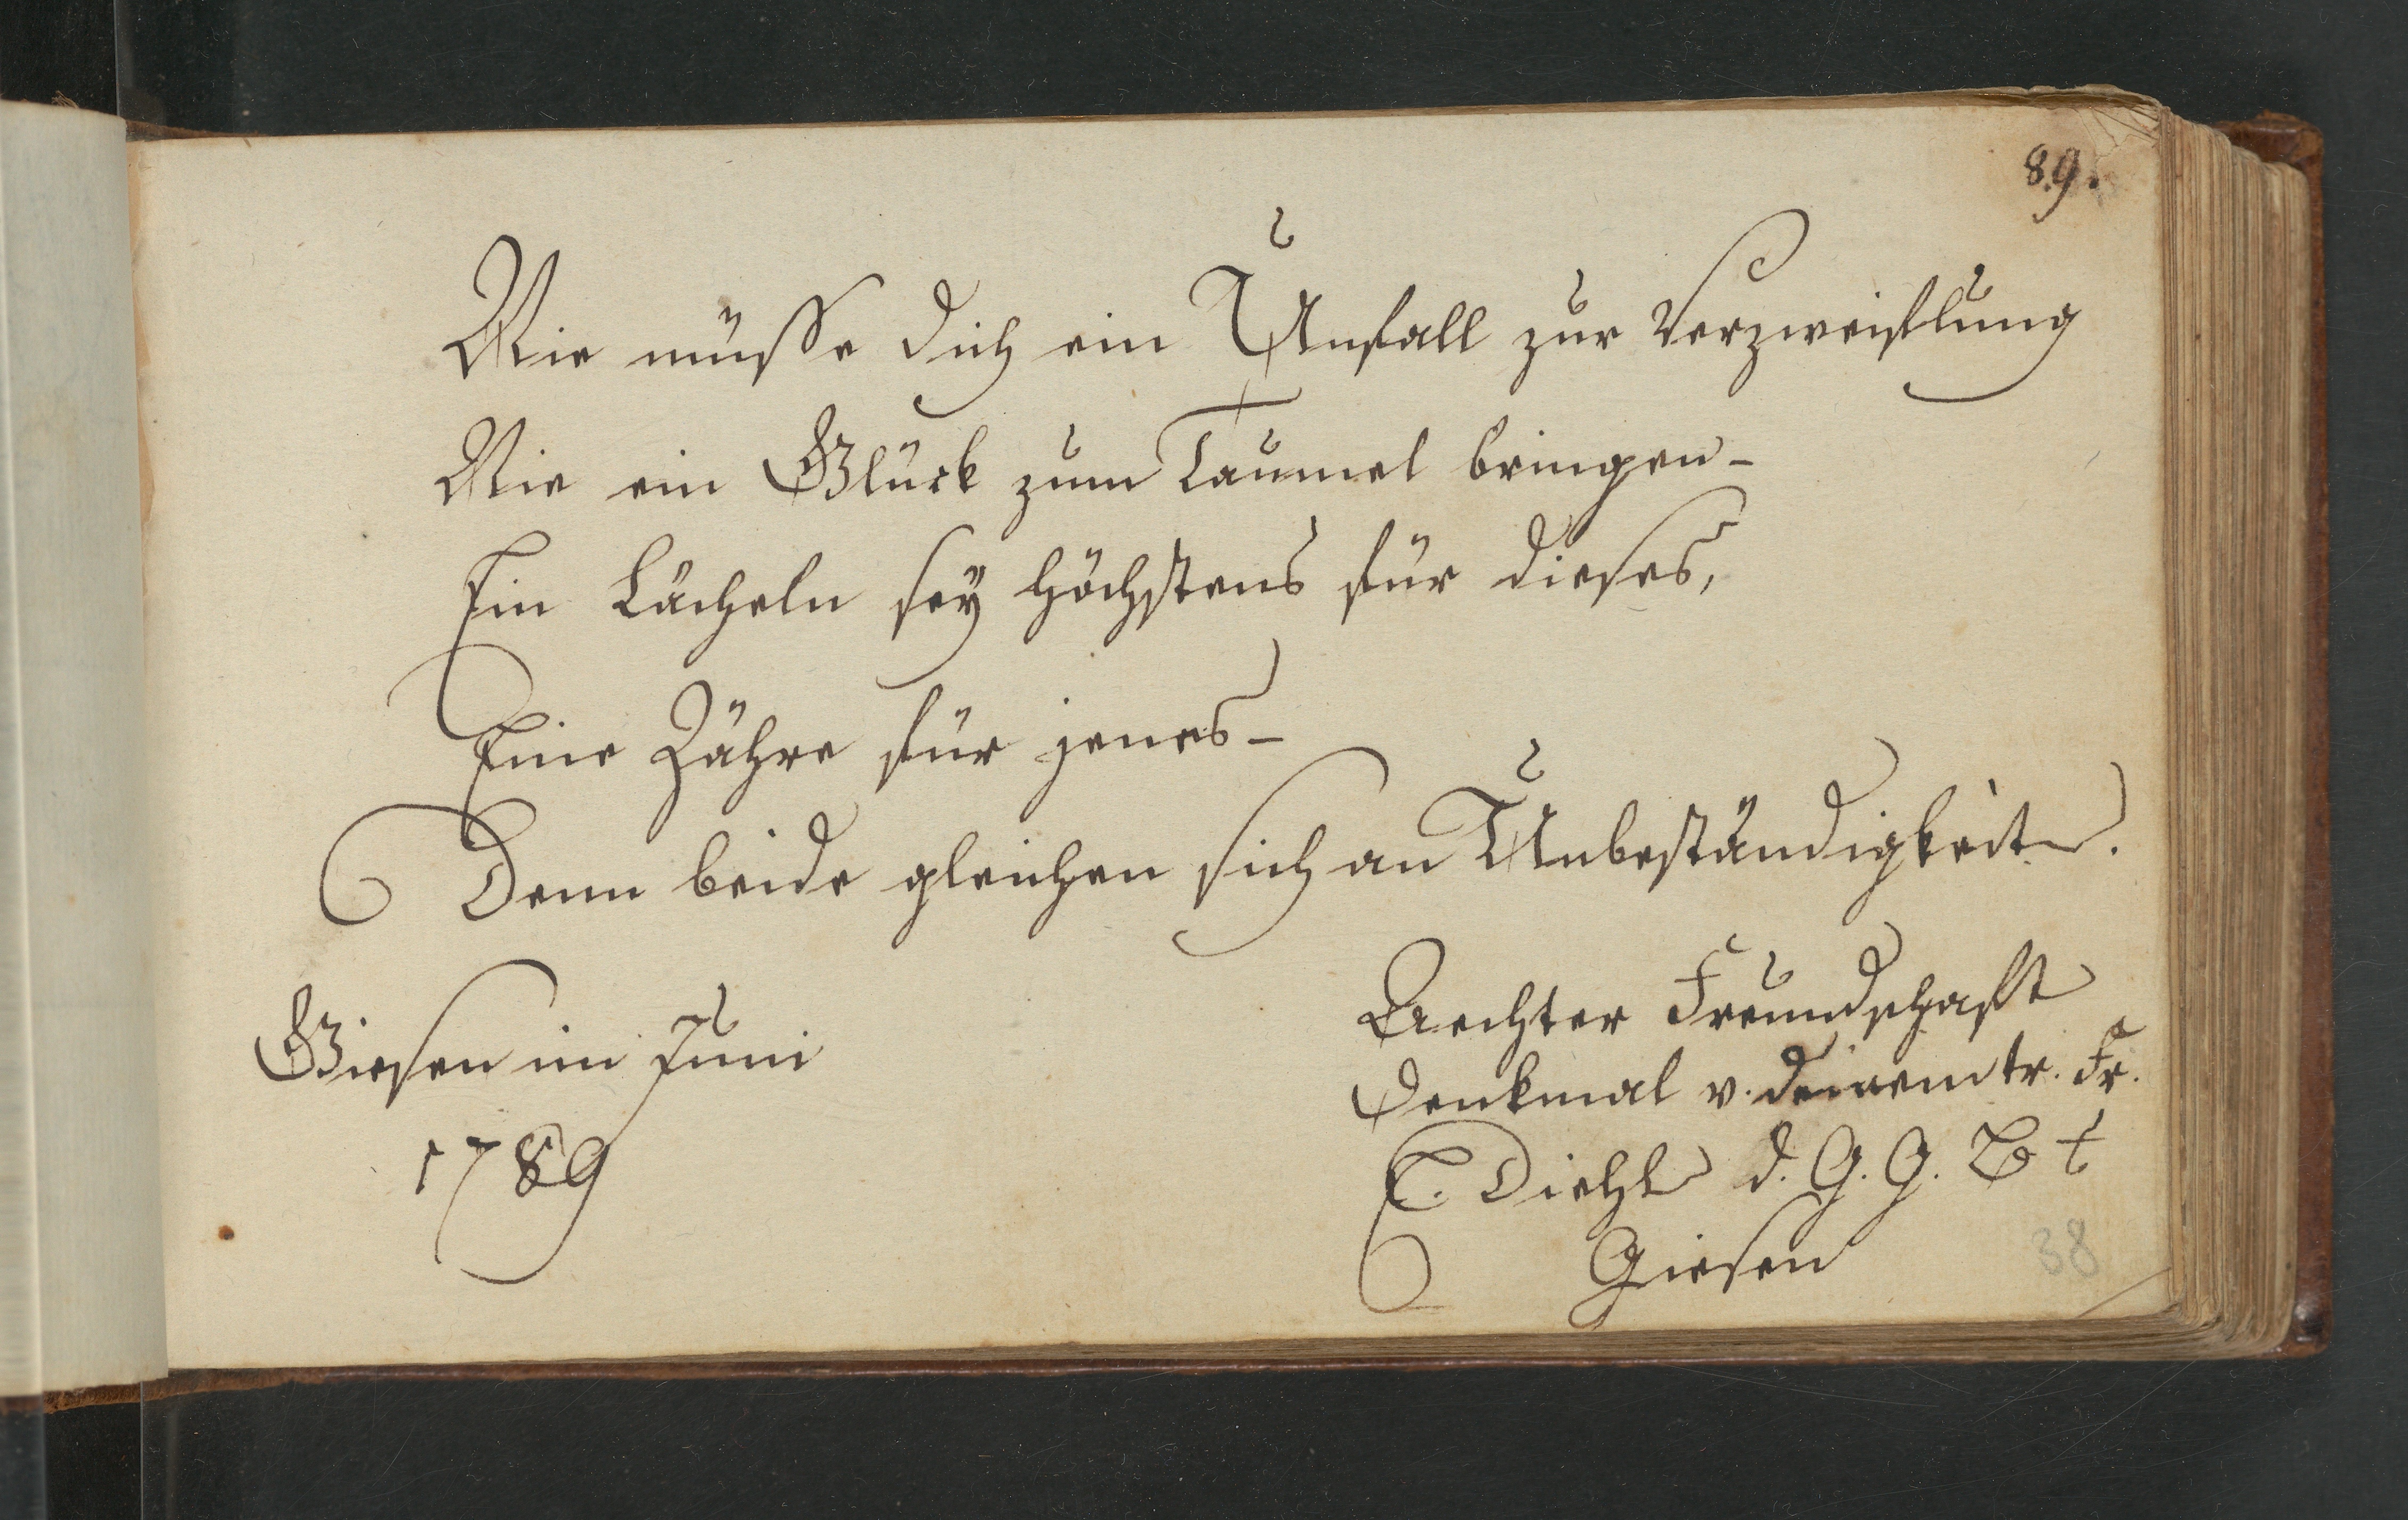 89.
Nie müsse dich ein Unfall zur Verzweiflung
Nie ein Glück zum Taumel bringen -
Ein Lächeln sey höchstens für dieses,
Eine Zähre für jenes -
Denn beide gleichen sich an Unbeständigkeit.
Giesen im Juni
1789
Aechter Freundschaft
Denkmal v. deinem tr. Fr.
E. Diehl d. G. G. B t
Giesen
38